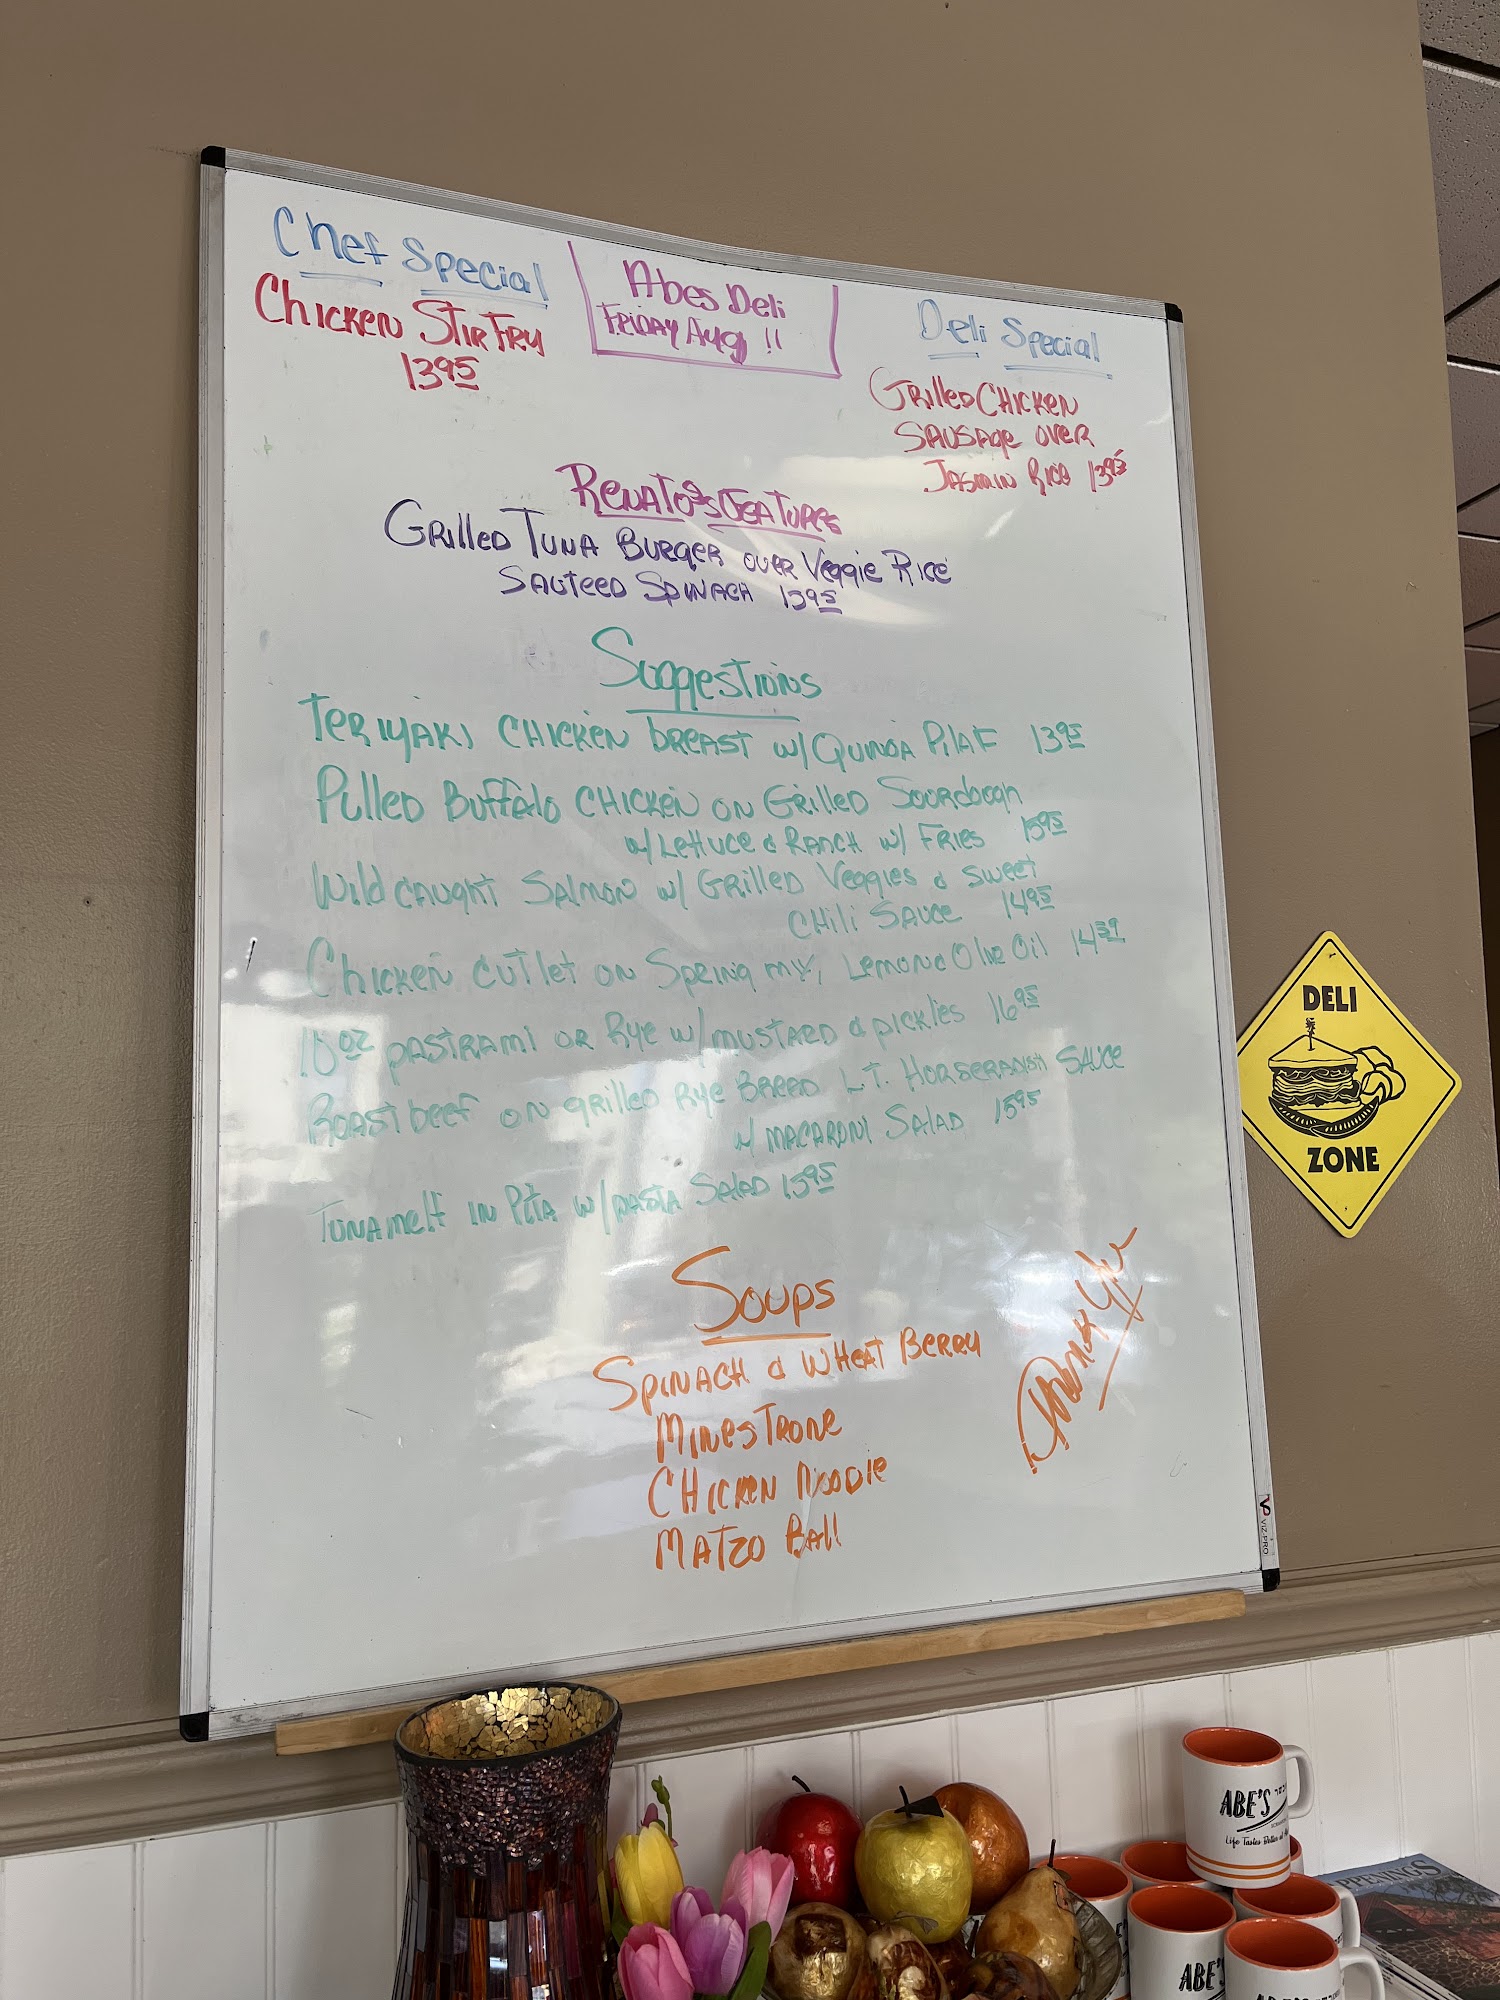 Chef Special
Chicken Stir Fry
13 95
Abes Deli
Friday Aug 11
Deli Special
Grilled Chicken
Sausage over
Jasmin Rice 13 95
Renato's Features
Grilled Tuna Burger over Veggie Rice
Sauteed Spinach 15 95
Suggestions
Teriyaki Chicken breast w/ Quinoa Pilaf 13 95
Pulled Buffalo Chicken on Grilled Sourdough
w/ Lettuce & Ranch w/ Fries 15 95
Wild caught Salmon w/ Grilled Veggies & Sweet
Chili Sauce 14 95
Chicken cutlet on Spring mix, Lemon & Olive Oil
10 oz pastrami or Rye w/ mustard & pickles 16 95
Roast beef on grilled Rye Bread L.T. Horseradish Sauce
w/ macaroni Salad 15 95
Tuna melt in Pita w/ pasta Salad 15 95
Soups
Spinach & Wheat Berry
Minestrone
Chicken Noodle
Matzo Ball
Thank You
VIZ-PRO
DELI
ZONE
ABE'S
Life Tastes Better at
ABE'
PPENINGS